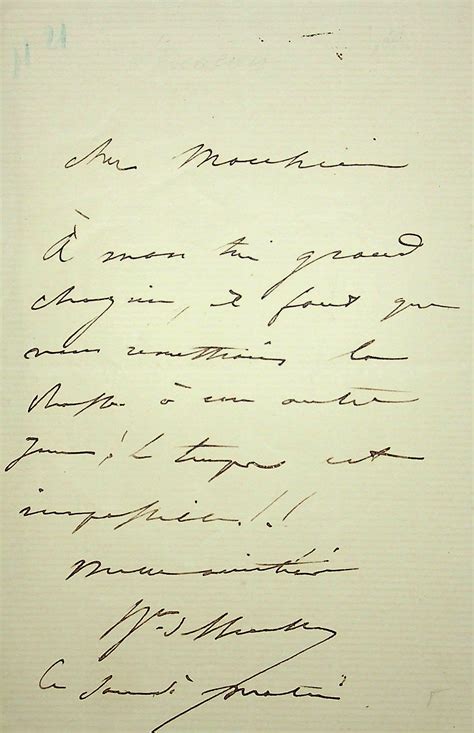 cher Monsieur
À mon très grand
chagrin, il faut que
nous remettions la
chasse à un autre
jour! Le temps est
impossible!!
Mille amitiés
Ce samedi matin